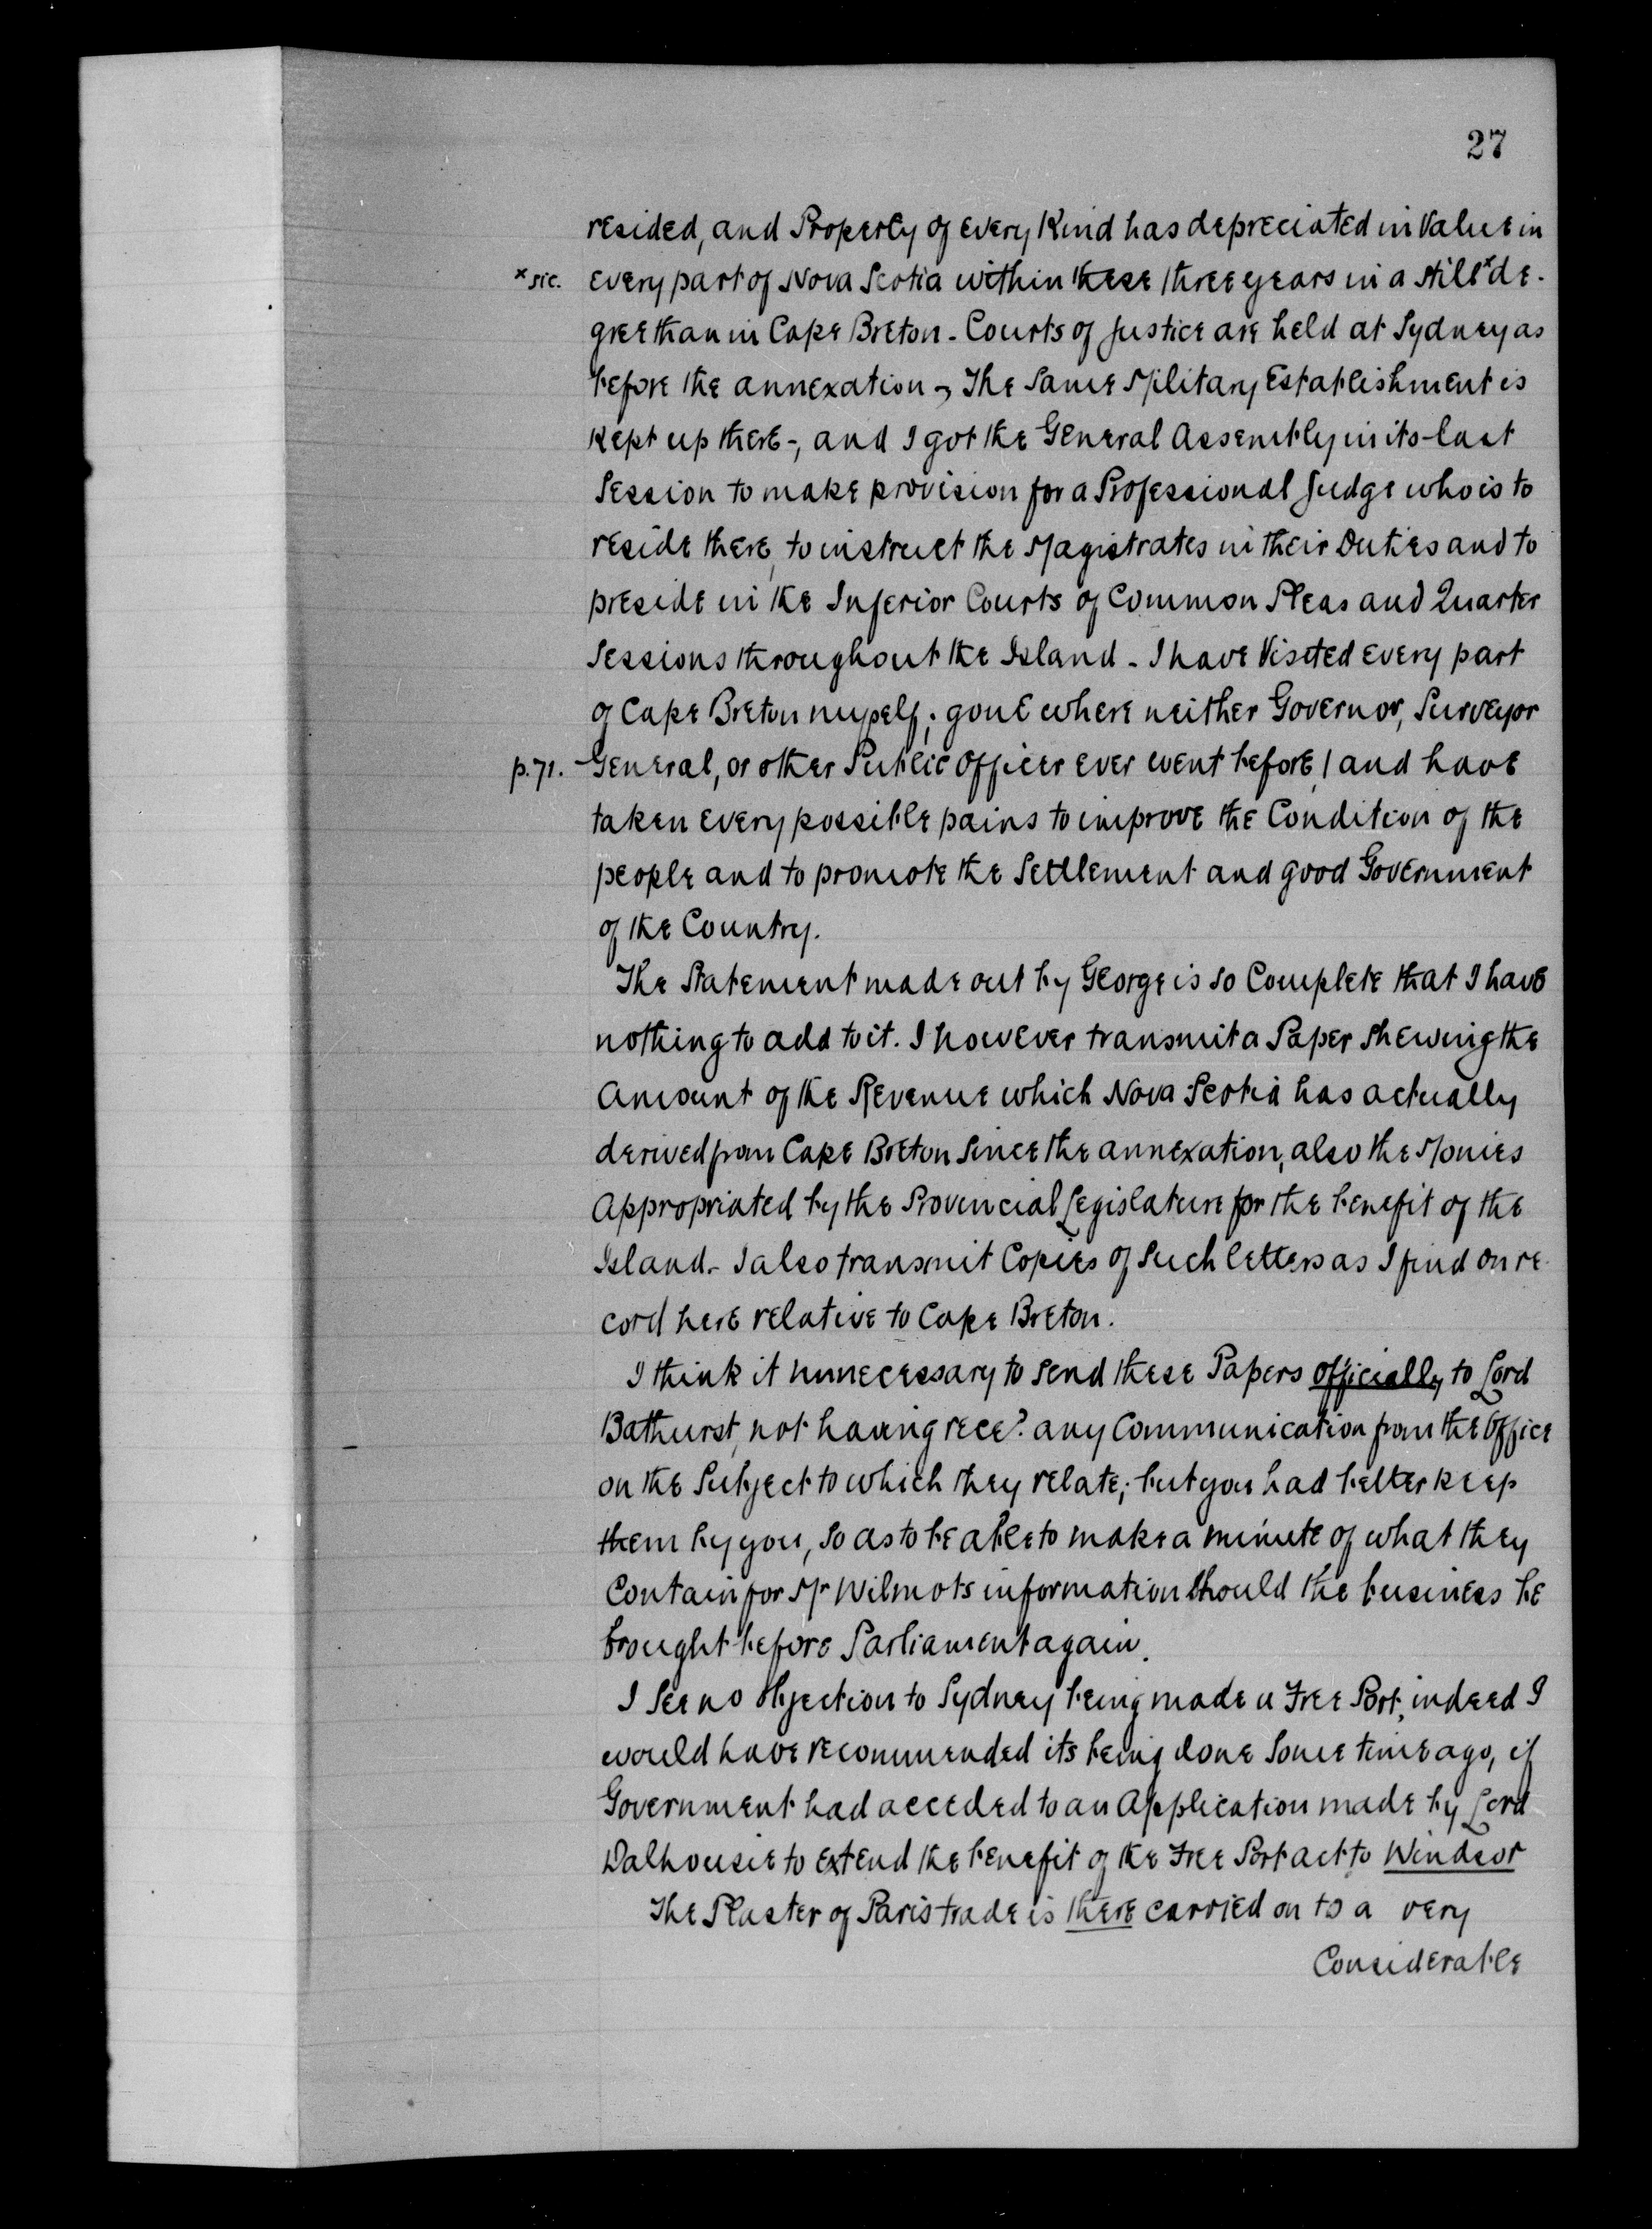 27
resided, and Property of every Kind has depreciated in Value in
x sic. every part of Nova Scotia within these three years in a still x de-
gree than in Cape Breton - Courts of Justice are held at Sydney as
before the annexation -, The Same Military Establishment is
Kept up there -, and I got the General Assembly in its last
Session to make provision for a Professional Judge who is to
reside there, to instruct the Magistrates in their Duties and to
preside in the Inferior Courts of Common Pleas and Quarter
Sessions throughout the Island - I have Visited every part
of Cape Breton myself; gone where neither Governor, Surveyor
p.71. General, or other Public Officer ever went before / and have
taken every possible pains to improve the Condition of the
people and to promote the Settlement and good Government
of the Country.
The Statement made out by George is so Complete that I have
nothing to add to it. I however transmit a Paper shewing the
Amount of the Revenue which Nova Scotia has actually
derived from Cape Breton Since the annexation, also the Monies
Appropriated by the Provincial Legislature for the benefit of the
Island - I also transmit Copies of Such letters as I find on re-
cord here relative to Cape Breton.
I think it unnecessary to send these Papers officially to Lord
Bathurst, not having recd. any Communication from the Office
on the Subject to which they relate; but you had better keep
them by you, so as to be able to make a minute of what they
Contain for Mr Wilmots information should the business be
brought before Parliament again.
I See no objection to Sydney being made a Free Port, indeed I
would have recommended its being done Some time ago, if
Government had acceded to an Application made by Lord
Dalhousie to extend the benefit of the Free Port act to Windsor
The Plaster of Paris trade is there carried on to a very
Considerable